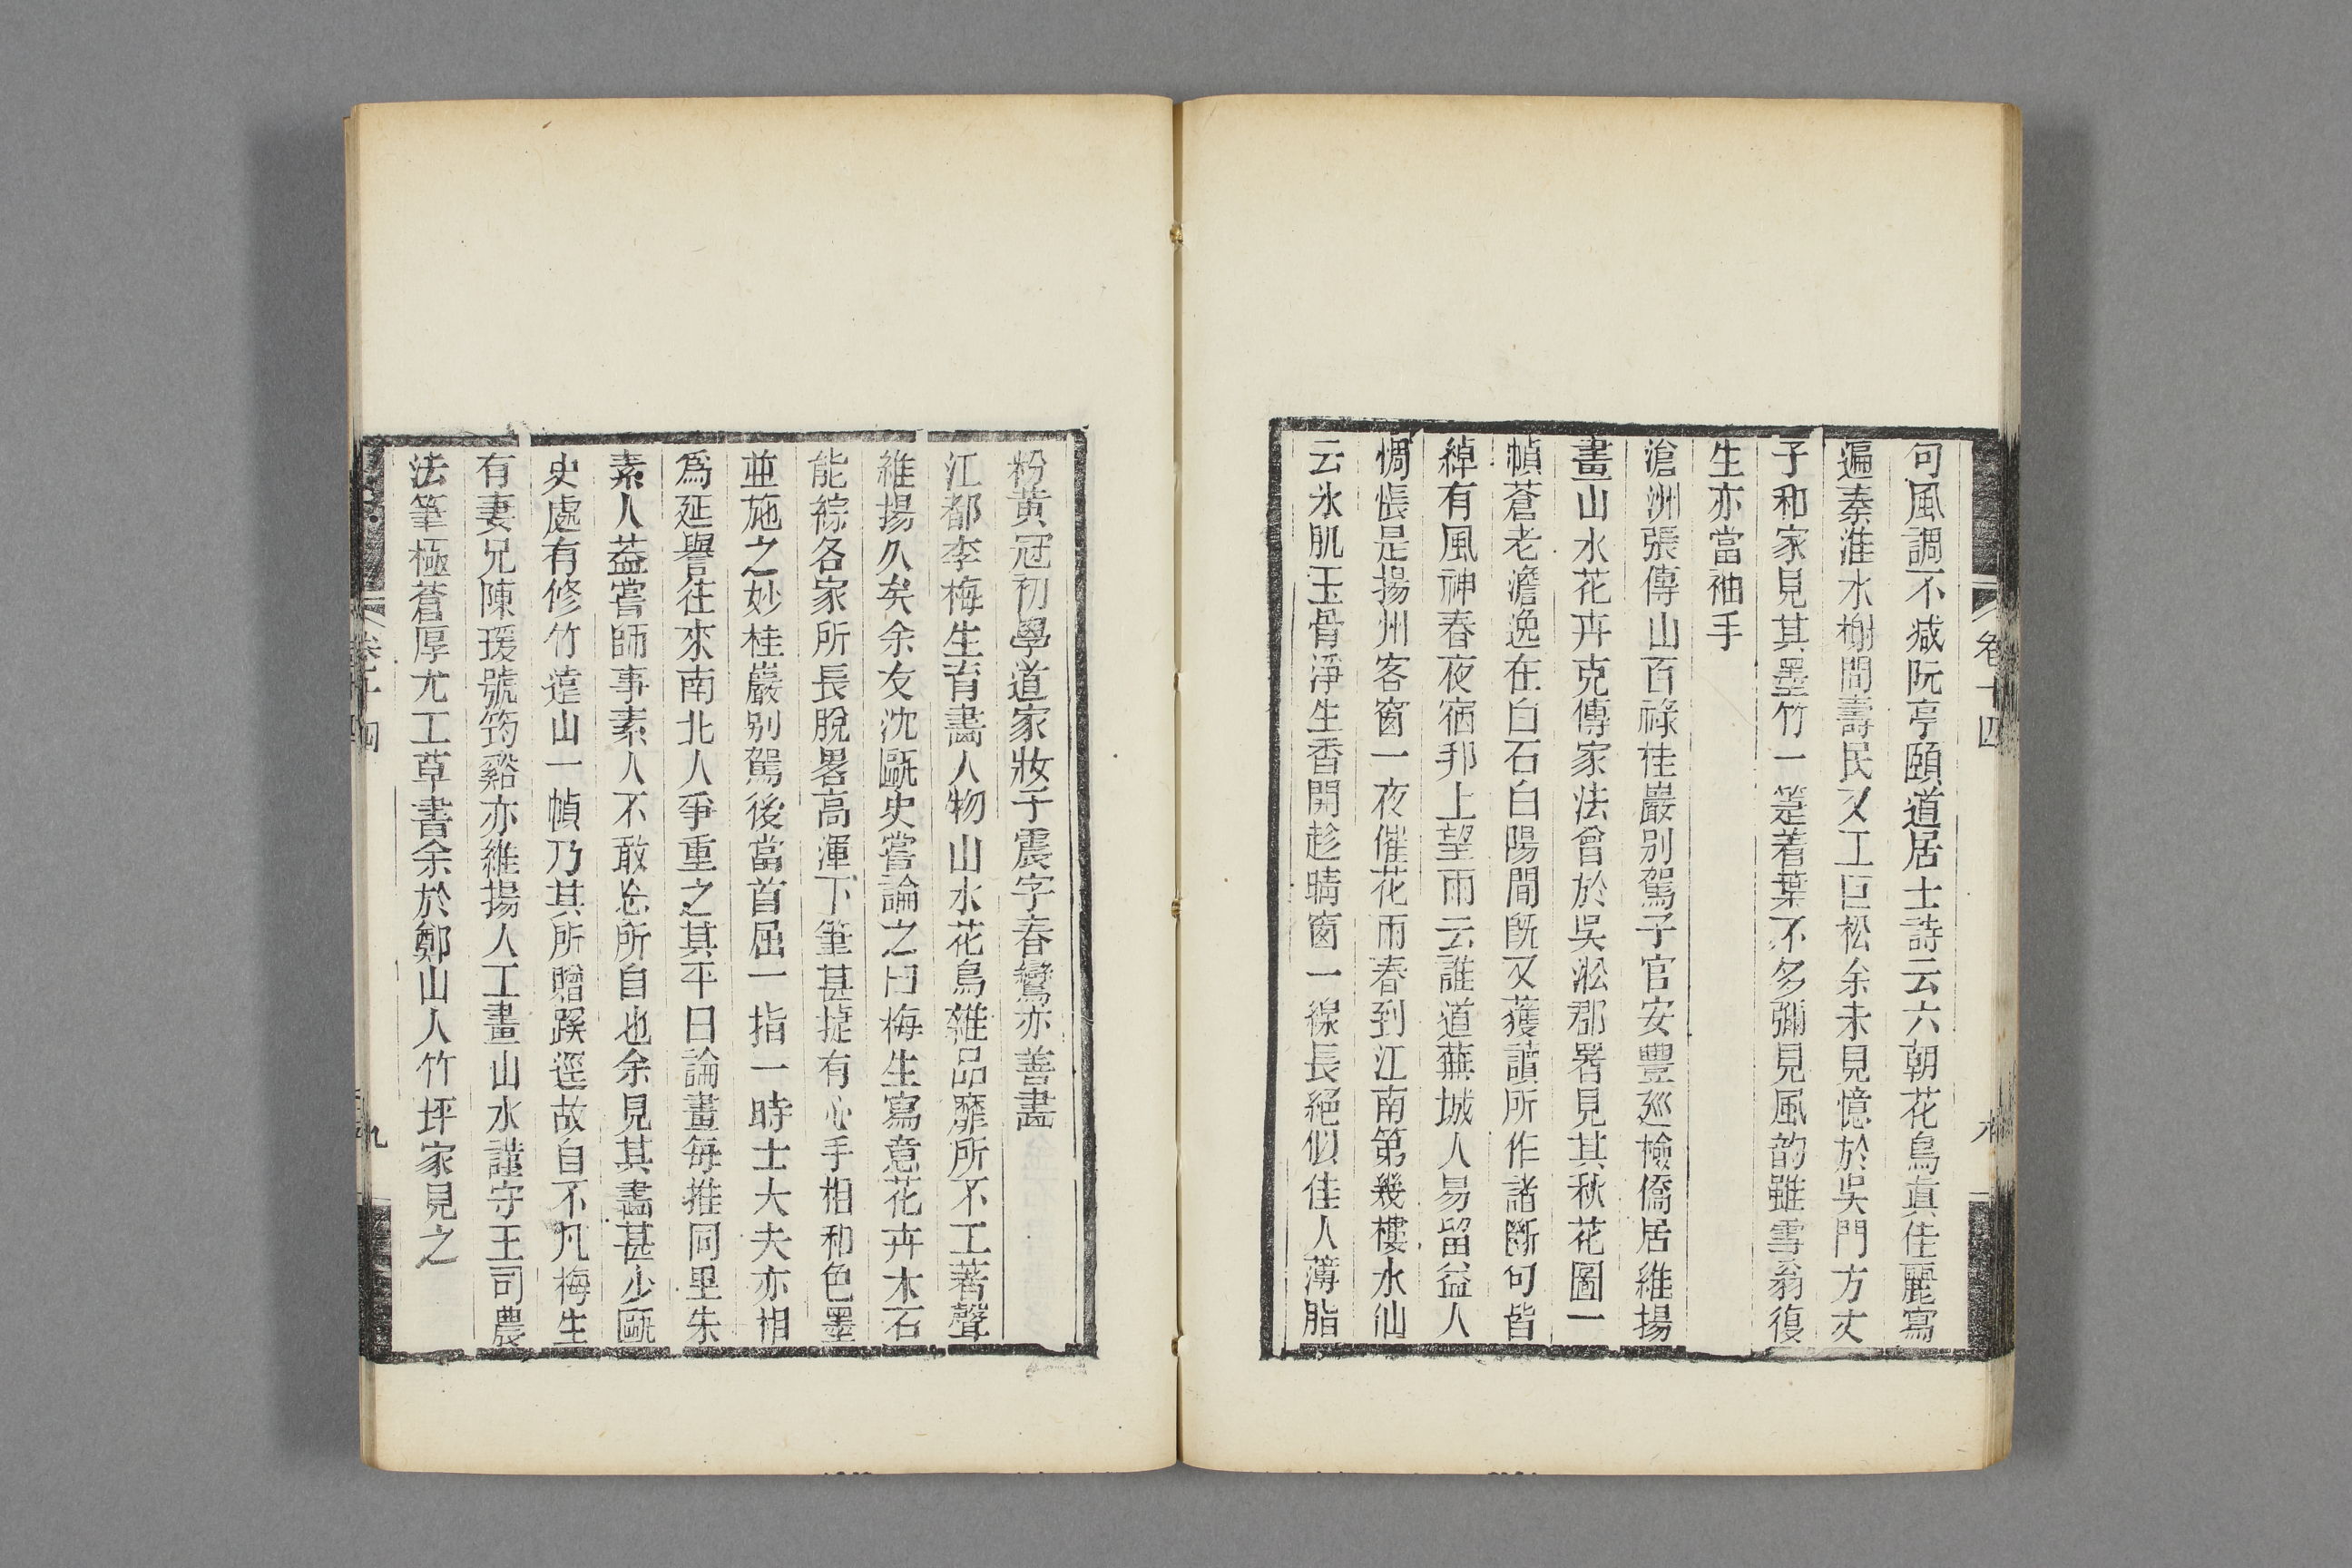 句風調不减阮亭頤道居士詩云六朝花鳥真佳麗寫
遍秦淮水榭間壽民又工巨松余未見憶於吳門方丈
子和家見其墨竹一箑着葉不多彌見風韵雖雪翁復
生亦當袖手
滄洲張傳山百祿桂巖别駕子官安豐巡檢僑居維揚
畫山水花卉克傳家法曾於吳淞郡署見其秋花圖一
幀蒼老澹逸在白石白陽間旣又獲讀所作諸斷句皆
綽有風神春夜宿邗上望雨云誰道蕪城人易留益人
惆悵是揚州客窗一夜催花雨春到江南第幾樓水仙
云氷肌玉骨淨生香開趁晴窗一線長絕似佳人薄脂
卷十四
粉黄冠初學道家妝子震字春鷺亦善畵
江都李梅生育畵人物山水花鳥雜品靡所不工著聲
維揚久矣余友沈甌史嘗論之曰梅生寫意花卉木石
能綜各家所長脫畧高渾下筆甚㨗有心手相和色墨
並施之妙桂巖别駕後當首屈一指一時士大夫亦相
爲延譽往來南北人爭重之其平日論畫毎推同里朱
素人葢嘗師事素人不敢忘所自也余見其畵甚少甌
史處有修竹遠山一幀乃其所贈蹊逕故自不凡梅生
有妻兄陳瑗號筠谿亦維揚人工畫山水謹守王司農
法筆極蒼厚尤工草書余於鄭山人竹坪家見之
卷十四
九